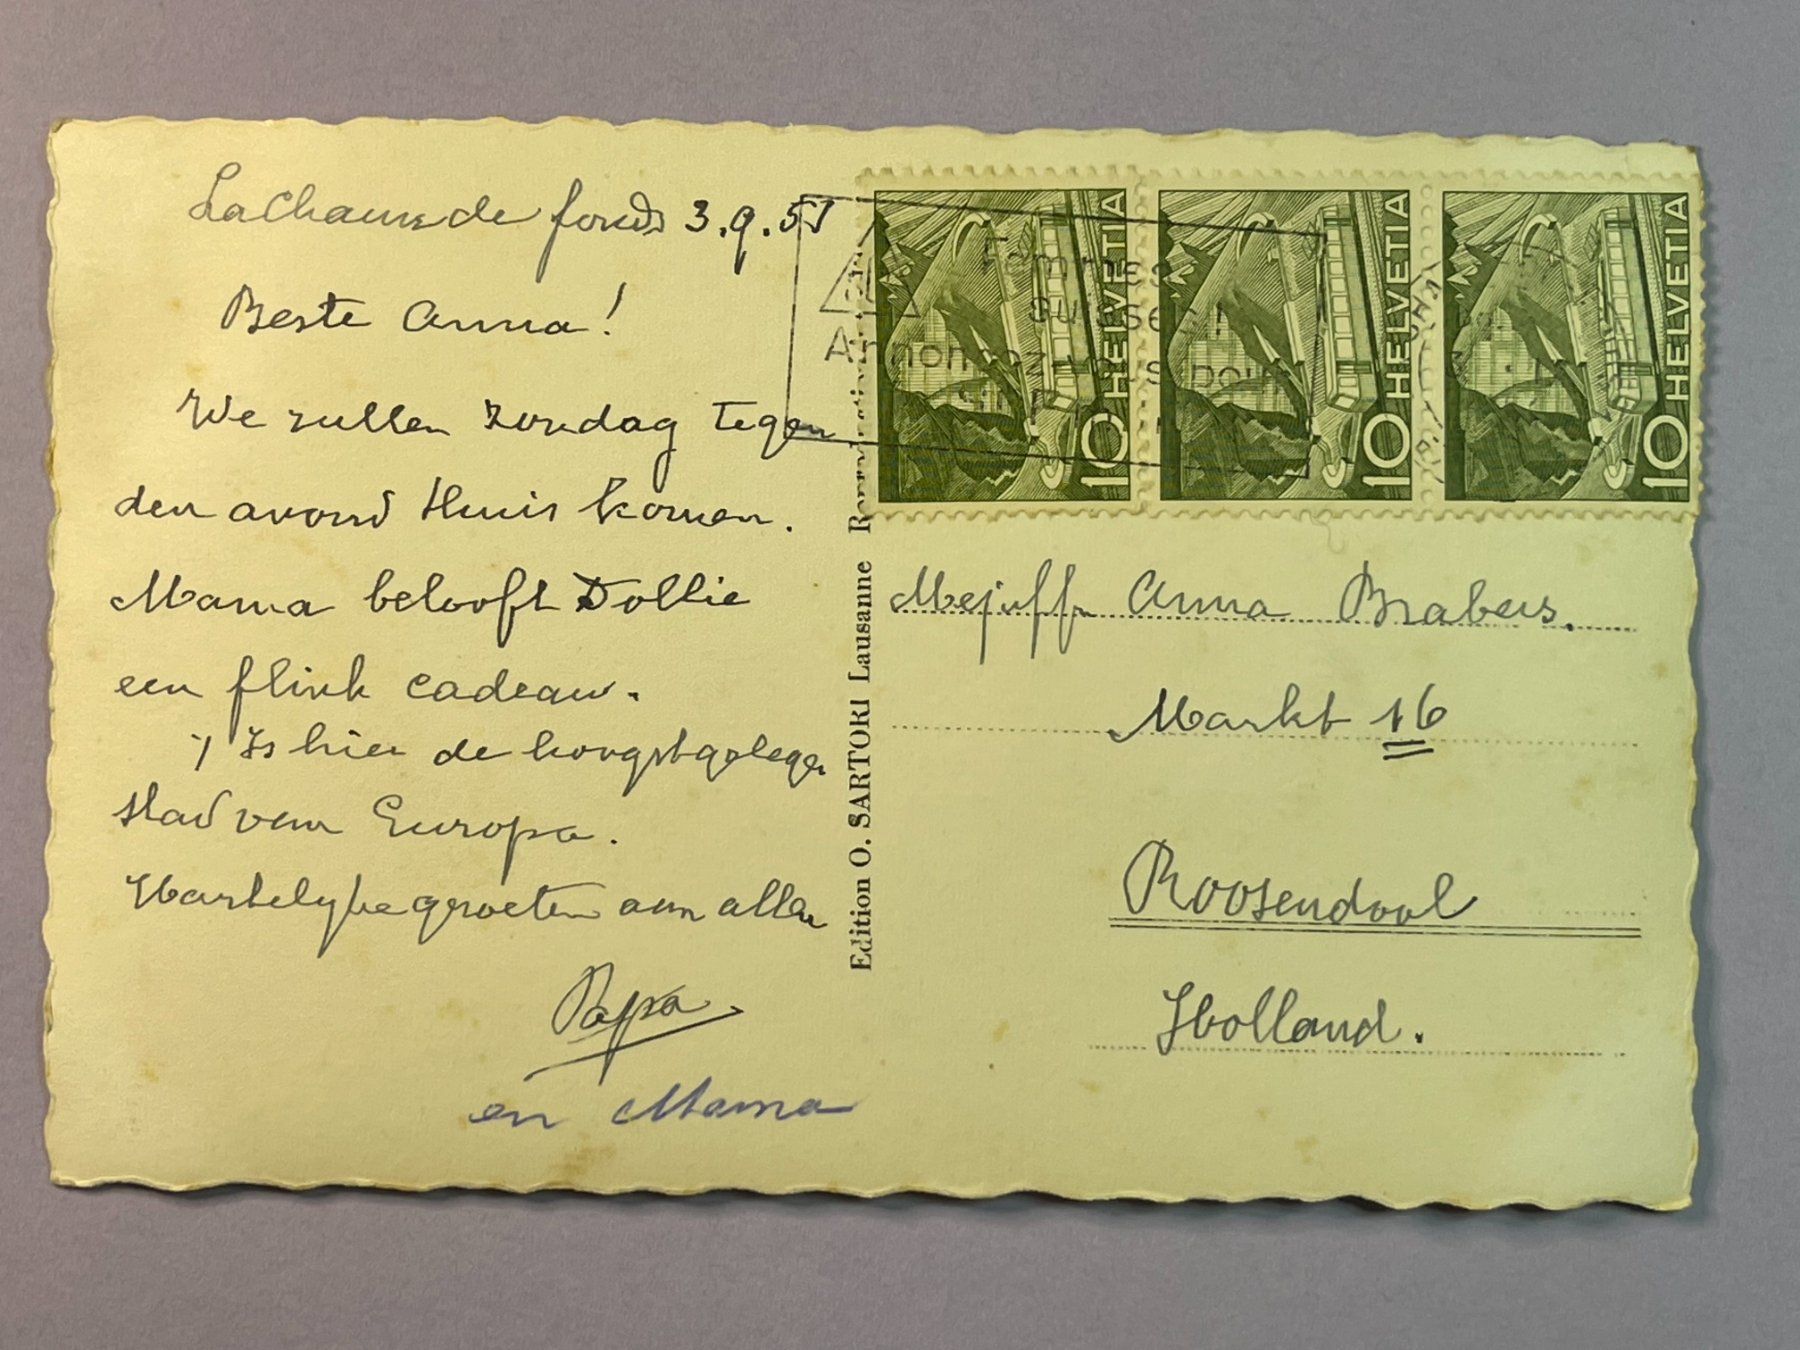 La Chaux de fonds 3.9.51
Beste Anna!
We zullen Zondag tegen
den avond thuis komen.
Mama belooft Dollie
een flink cadeau.
't Is hier de hoogstgelegen
stad van Europa.
Hartelyke groeten aan allen
Papa
en Mama
Edition O. SARTORI Lausanne
Femmes
suisses!
Annoncez-vous pour
HELVETIA
10
HELVETIA
10
HELVETIA
10
Mejuffr Anna Brabers.
Markt 16
Roosendaal
Holland.